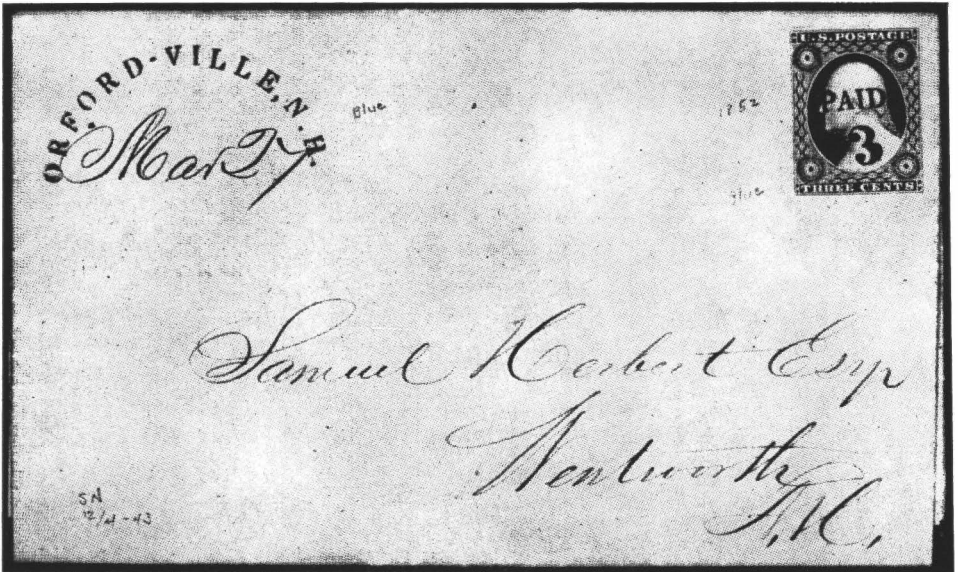 ORFORD-VILLE, N.H.
Mar 27
Blue
1852
U.S. POSTAGE
PAID
3
THREE CENTS
Blue
Samuel Herbert Esqr
Wentworth
N.H.
SN
12/4-43